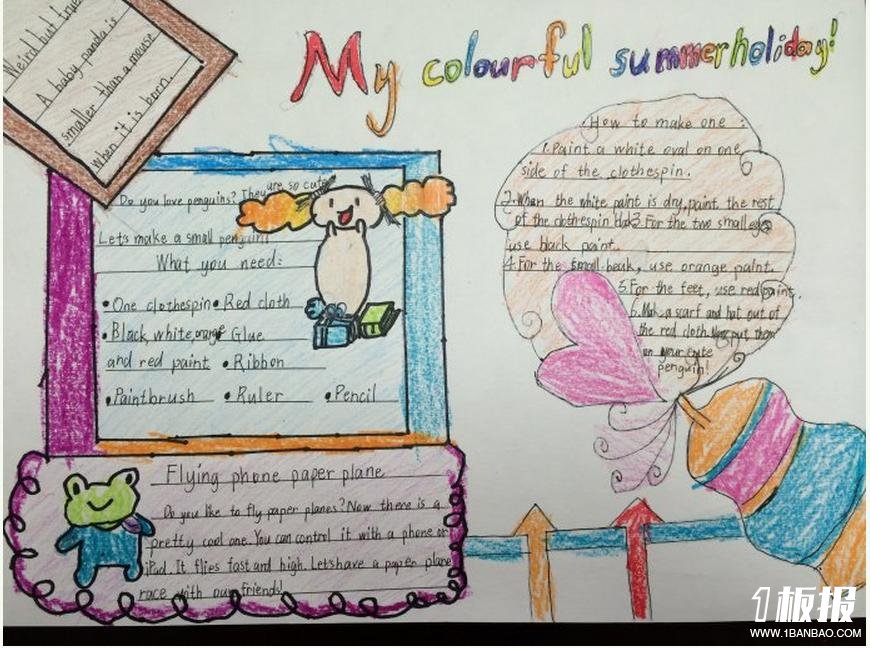 My colourful summer holiday!
Weird but true
A baby panda is
smaller than a mouse
when it is born.
Do you love penguins? They are so cute
Let's make a small penguin!
What you need:
• One clothespin • Red cloth
• Black, white, orange • Glue
and red paint • Ribbon
• Paintbrush • Ruler • Pencil
Flying phone paper plane
Do you like to fly paper planes? Now there is a
pretty cool one. You can control it with a phone or
iPad. It flies fast and high. Let's have a paper plane
race with our friends!
How to make one:
1. Paint a white oval on one
side of the clothespin.
2. When the white paint is dry, paint the rest
of the clothespin black 3. For the two small eyes
use black paint.
4. For the small beak, use orange paint.
5. For the feet, use red paint.
6. Make a scarf and hat out of
the red cloth. put them
on your cute
penguin!
1板报
WWW.1BANBAO.COM